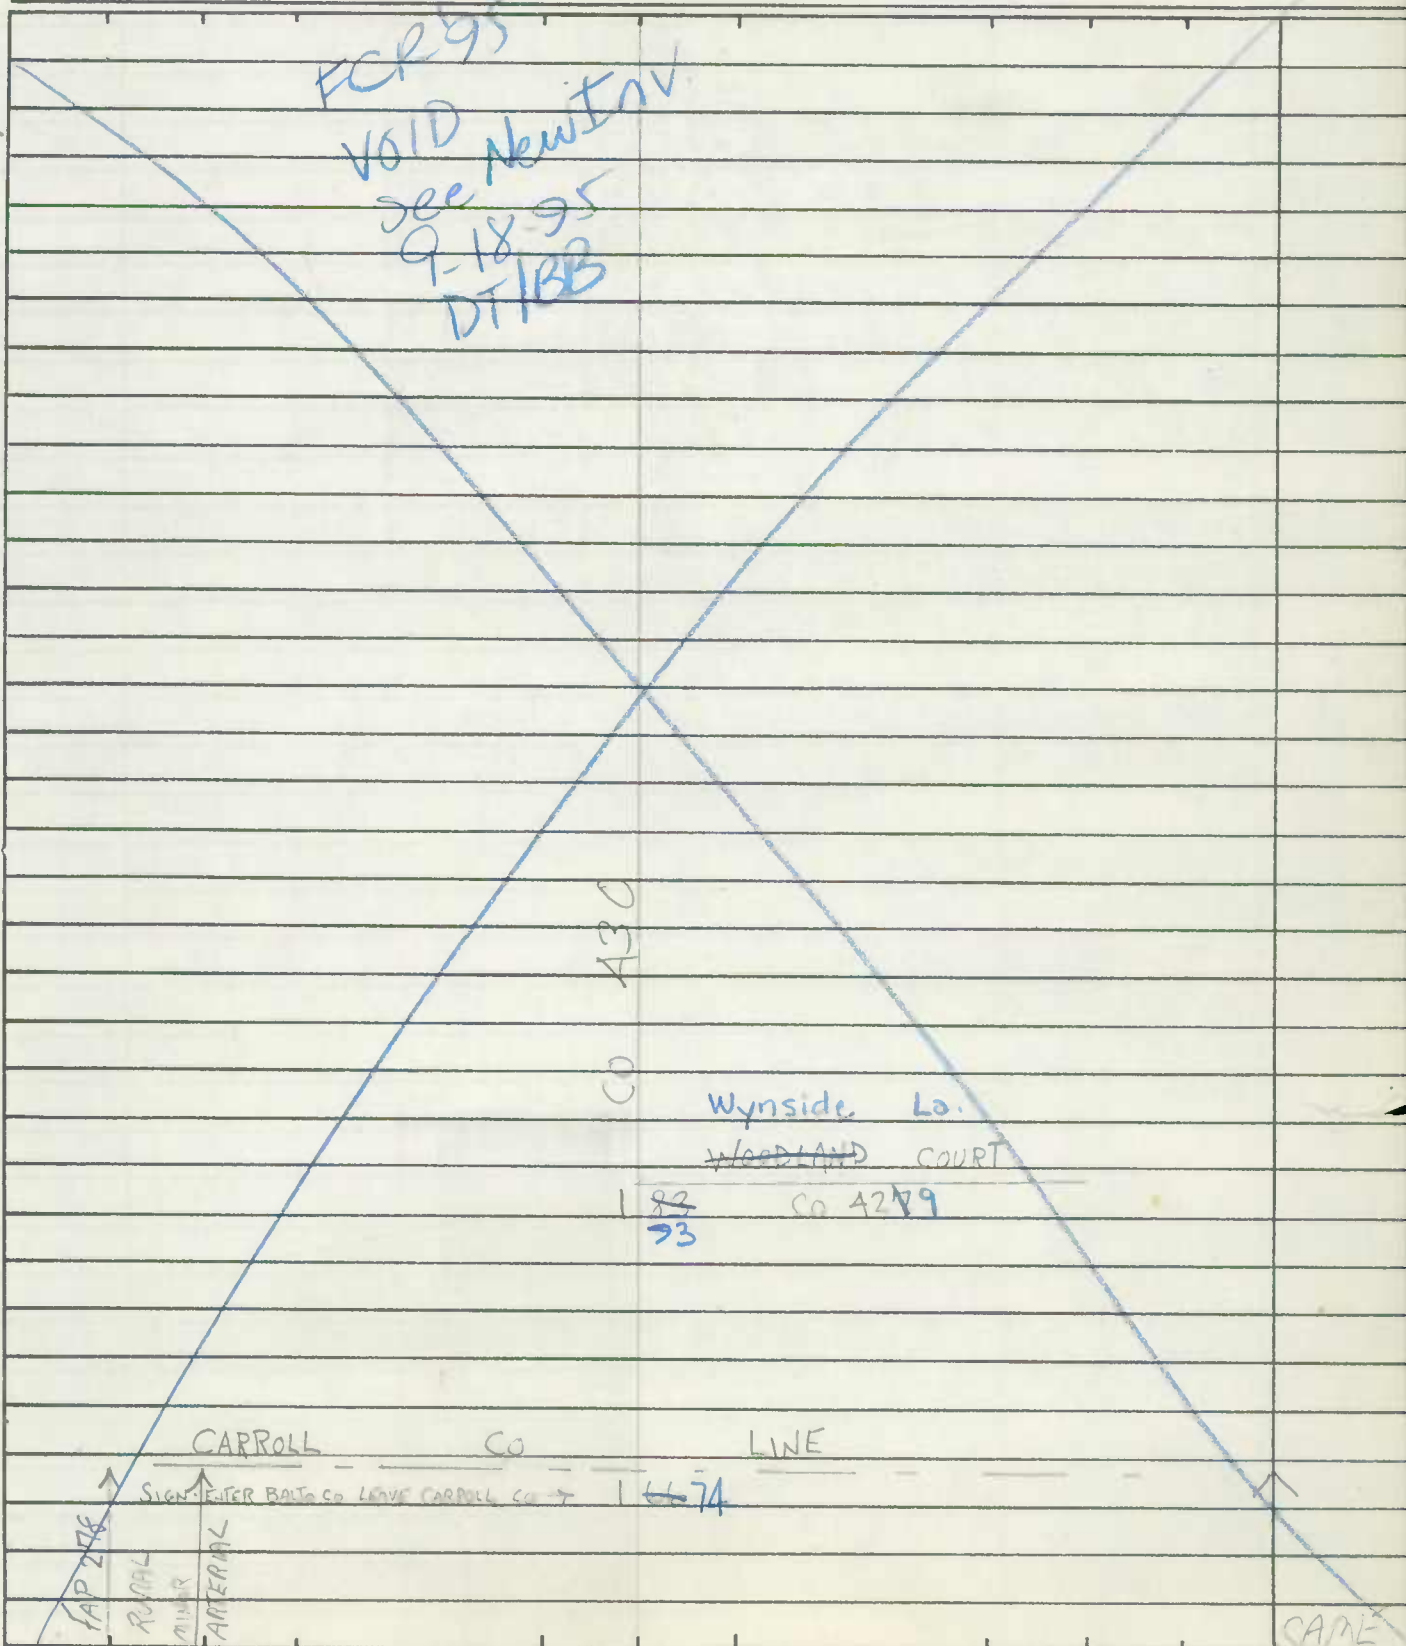 FCR 95
VOID
see New Inv
9-18-95
DT/BB
CO A30
Wynside La.
WOODLAND COURT
1 83 CO 4279
93
CARROLL CO LINE
SIGN-ENTER BALTO CO LEAVE CARROLL CO → 1 66 74
FAP 278
RURAL
MINOR
ARTERIAL
SAME